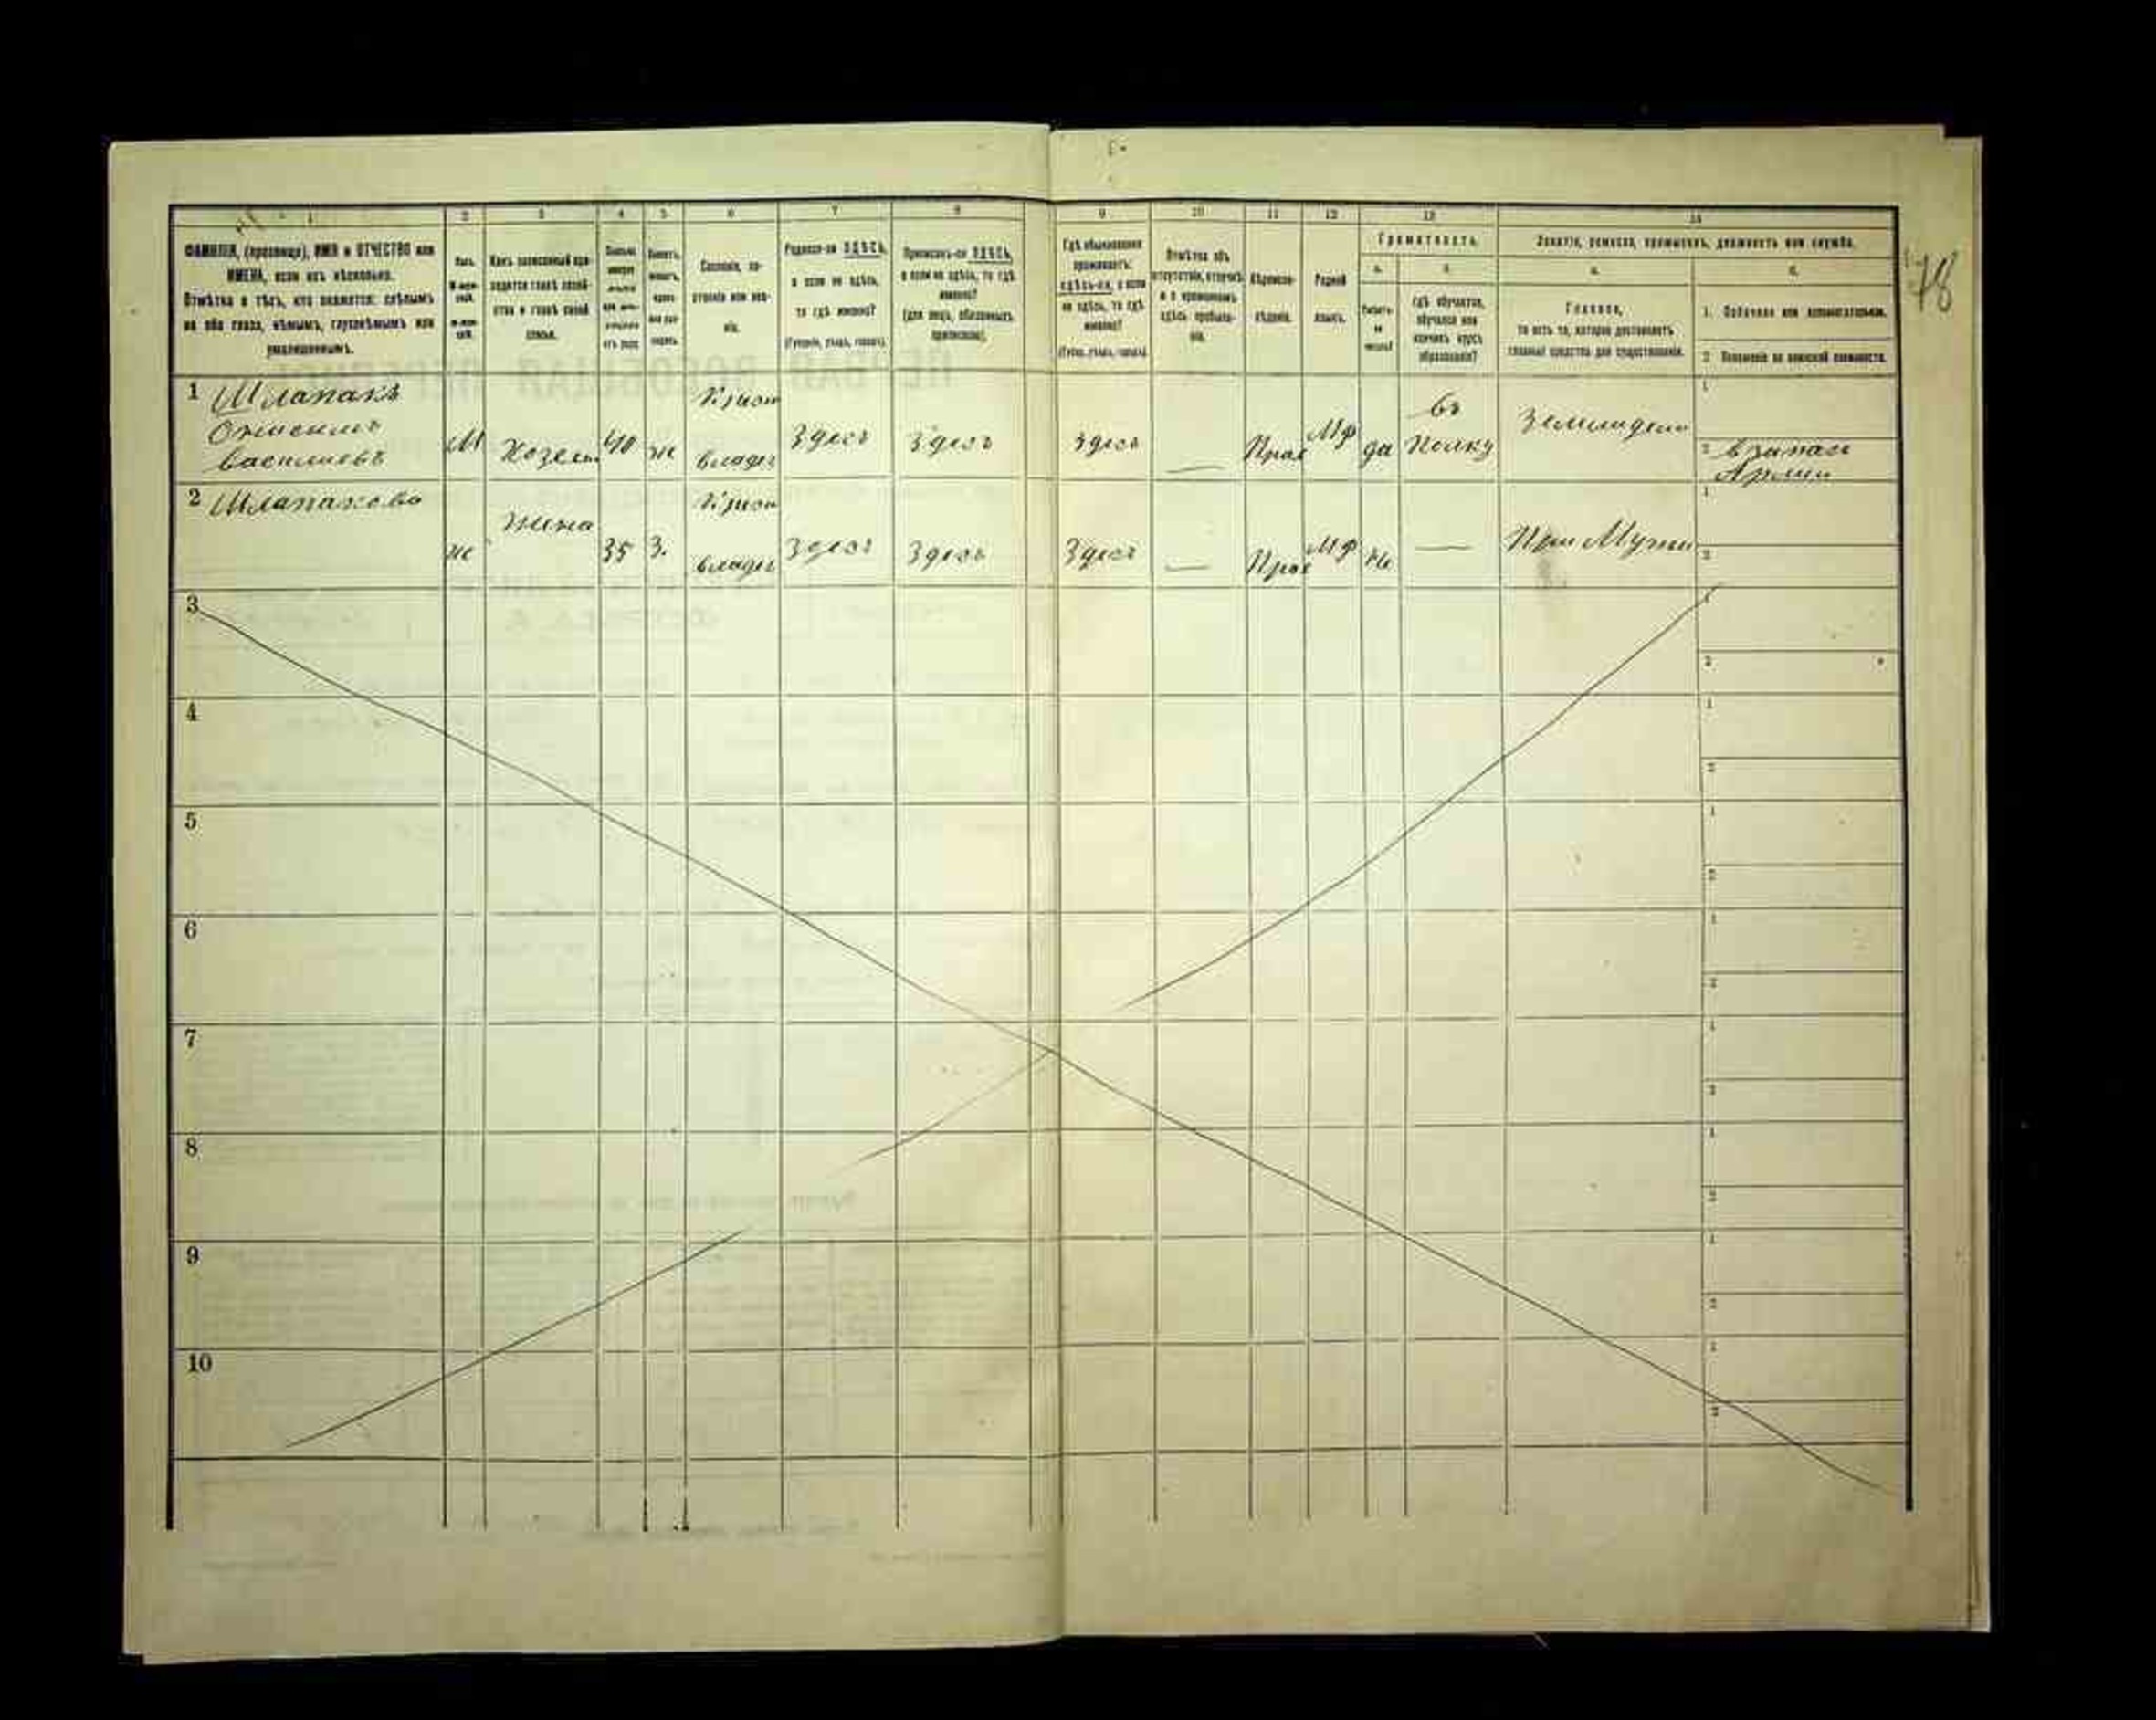 1 2 3 4 5 6 7 8 9 10 11 12 13 14
ФАМИЛІЯ, (прозвище), ИМЯ и ОТЧЕСТВО или
ИМЕНА, если ихъ нѣсколько.
Отмѣтка о тѣхъ, кто окажется: слѣпымъ
на оба глаза, нѣмымъ, глухонѣмымъ или
умалишеннымъ.
Полъ.
М-муж-
ской.
Ж-жен-
скій.
Какъ записанный при-
ходится главѣ хозяй-
ства и главѣ своей
семьи.
Сословіе, со-
стояніе или зва-
ніе.
Родился-ли ЗДѢСЬ,
а если не здѣсь,
то гдѣ именно?
(Губернія, уѣздъ, городъ).
Приписанъ-ли ЗДѢСЬ,
а если не здѣсь, то гдѣ
именно?
(для лицъ, обязанныхъ
припискою).
Гдѣ обыкновенно
проживаетъ:
здѣсь-ли, а если
не здѣсь, то гдѣ
именно?
(Губер., уѣздъ, городъ).
Отмѣтка объ
отсутствіи, отлучкѣ
и о временномъ
здѣсь пребыва-
ніи.
Вѣроиспо-
вѣданіе.
Родной
языкъ.
Грамотность.
а.
Умѣетъ-
ли
читать?
б.
Гдѣ обучается,
обучался или
кончилъ курсъ
образованія?
Занятіе, ремесло, промыселъ, должность или служба.
а.
Главное,
то есть то, которое доставляетъ
главныя средства для существованія.
б.
1. Побочное или вспомогательное.
2. Положеніе по воинской повинности.
78
1 Шлапакъ
Онисимъ
Васильевъ
М
Хозяин
40
же
Крест
владел
Здесь
Здесь
Здесь
—
Прав
МР
да
Въ
Полку
Земледел
1
2 в запасе
Армии
2 Шлапакова
же
жена
35
З.
Крест
владел
Здесь
Здесь
Здесь
—
Прав
МР
Не
—
При Мужи
1
2
3
1
2
4
1
2
5
1
2
6
1
2
7
1
2
8
1
2
9
1
2
10
1
2